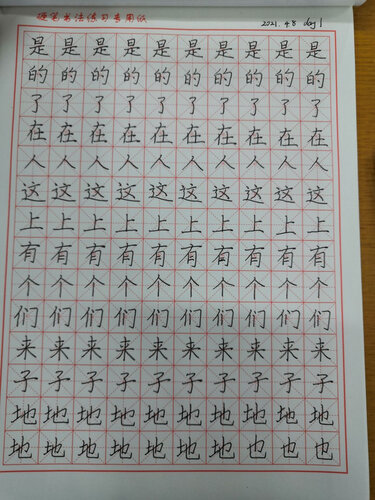 硬笔书法练习专用纸 2021. 4.8 day 1
是是是是是是是是是
的的的的的的的的的
了了了了了了了了了
在在在在在在在在在
人人人人人人人人人
这这这这这这这这这
上上上上上上上上上
有有有有有有有有有
个个个个个个个个个
们们们们们们们们们
来来来来来来来来来
子子子子子子子子子
地地地地地地地地地
地地地地地地也也也